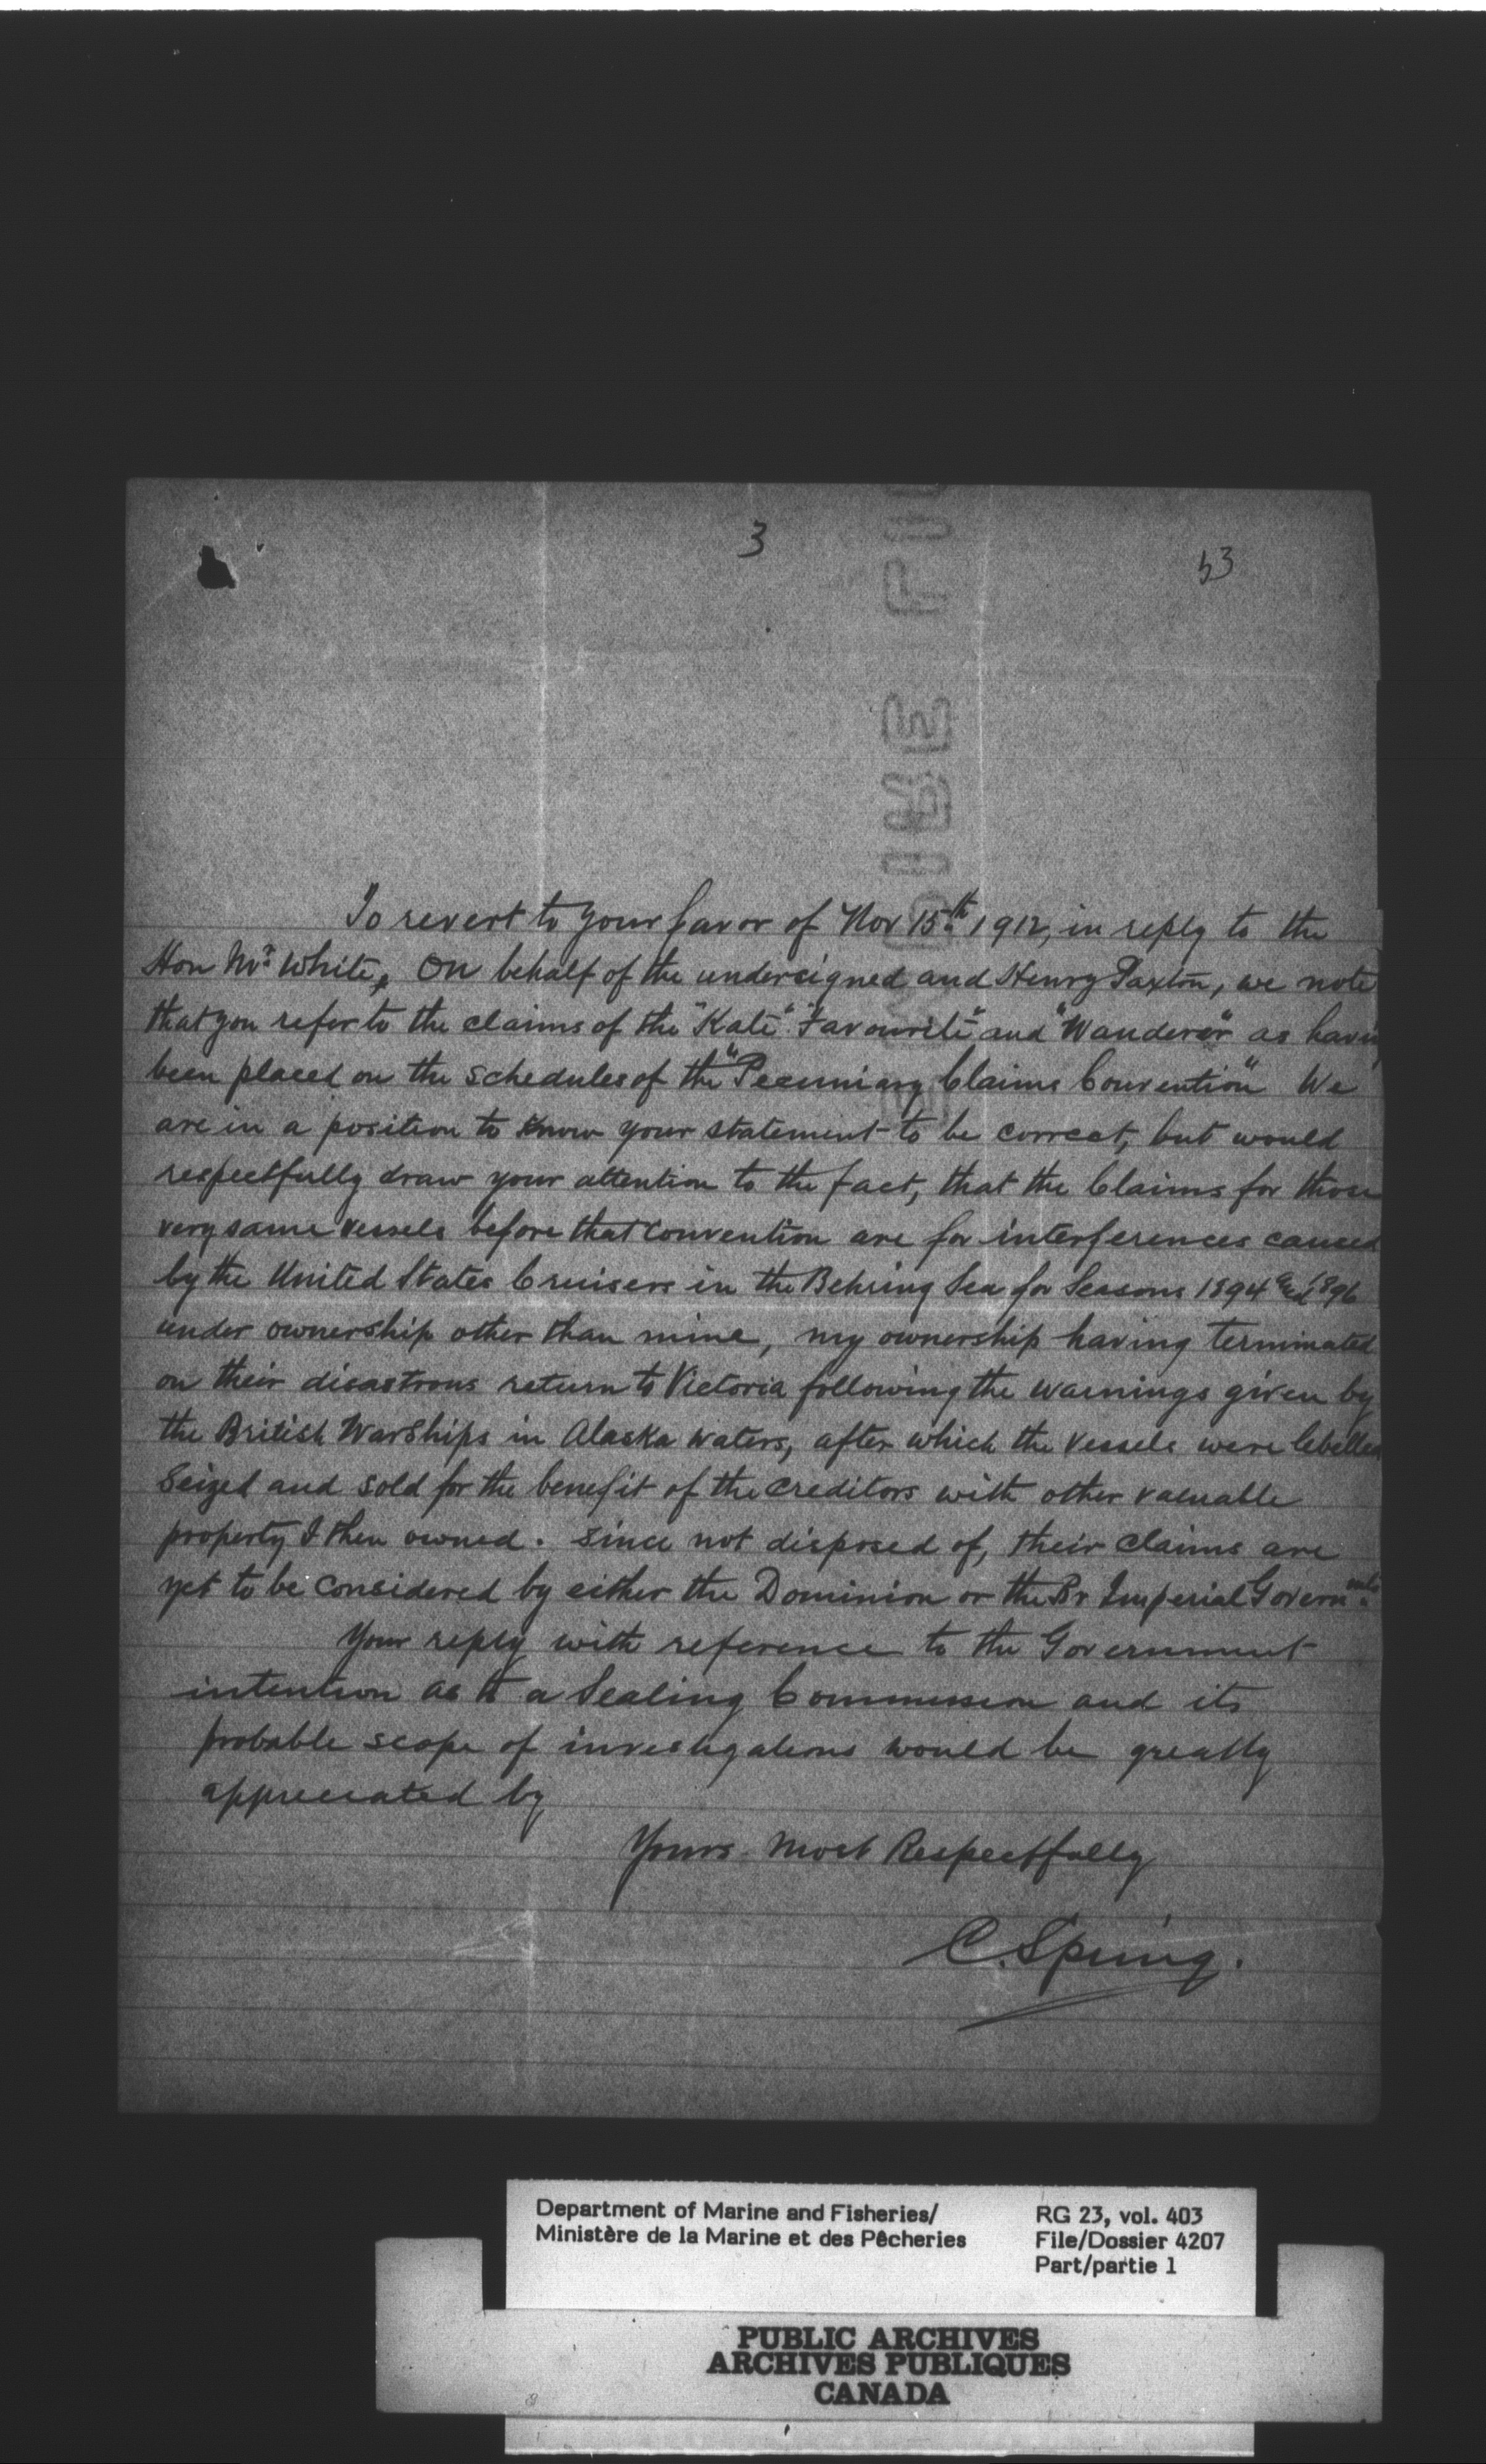 3
53
To revert to your favor of Nov 15th 1912, in reply to the
Hon Mr. White, On behalf of the undersigned and Henry Paxton, we note
that you refer to the claims of the "Kate" "Favourite" and "Wanderer" as havin
been placed on the schedules of the "Pecuniary Claims Convention" We
are in a position to know your statement to be correct, but would
respectfully draw your attention to the fact, that the Claims for those
very same vessels before that convention are for interferences caused
by the United States Cruisers in the Behring Sea for Seasons 1894 and 1896
under ownership other than mine, my ownership having terminated
on their disastrous return to Victoria following the warnings given by
the British WarShips in Alaska waters, after which the vessels were libelled
Seized and sold for the benefit of the creditors with other valuable
property I then owned. since not disposed of, their claims are
yet to be considered by either the Dominion or the Br Imperial Governmts.
Your reply with reference to the Government
intention as to a Sealing Commission and its
probable scope of investigations would be greatly
appreciated by
Yours most Respectfully
C. Spring.
Department of Marine and Fisheries/
Ministère de la Marine et des Pêcheries
RG 23, vol. 403
File/Dossier 4207
Part/partie 1
PUBLIC ARCHIVES
ARCHIVES PUBLIQUES
CANADA